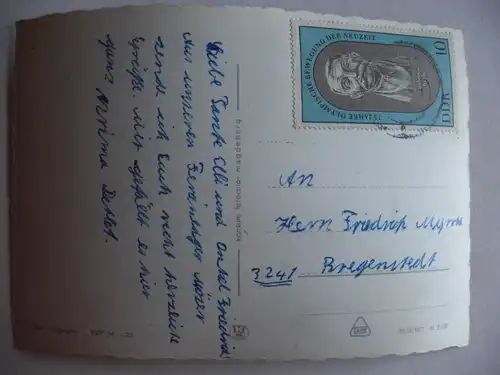 Liebe Tante Elli und Onkel Friedrich
Aus unseren Ferienlager
sende ich Euch recht herzliche
Grüße. Mir gefällt es hier
ganz prima. Detlef.
75 JAHRE OLYMPISCHE BEWEGUNG DER NEUZEIT
10
DDR
An
Herrn Friedrich
3241 Bregenstedt